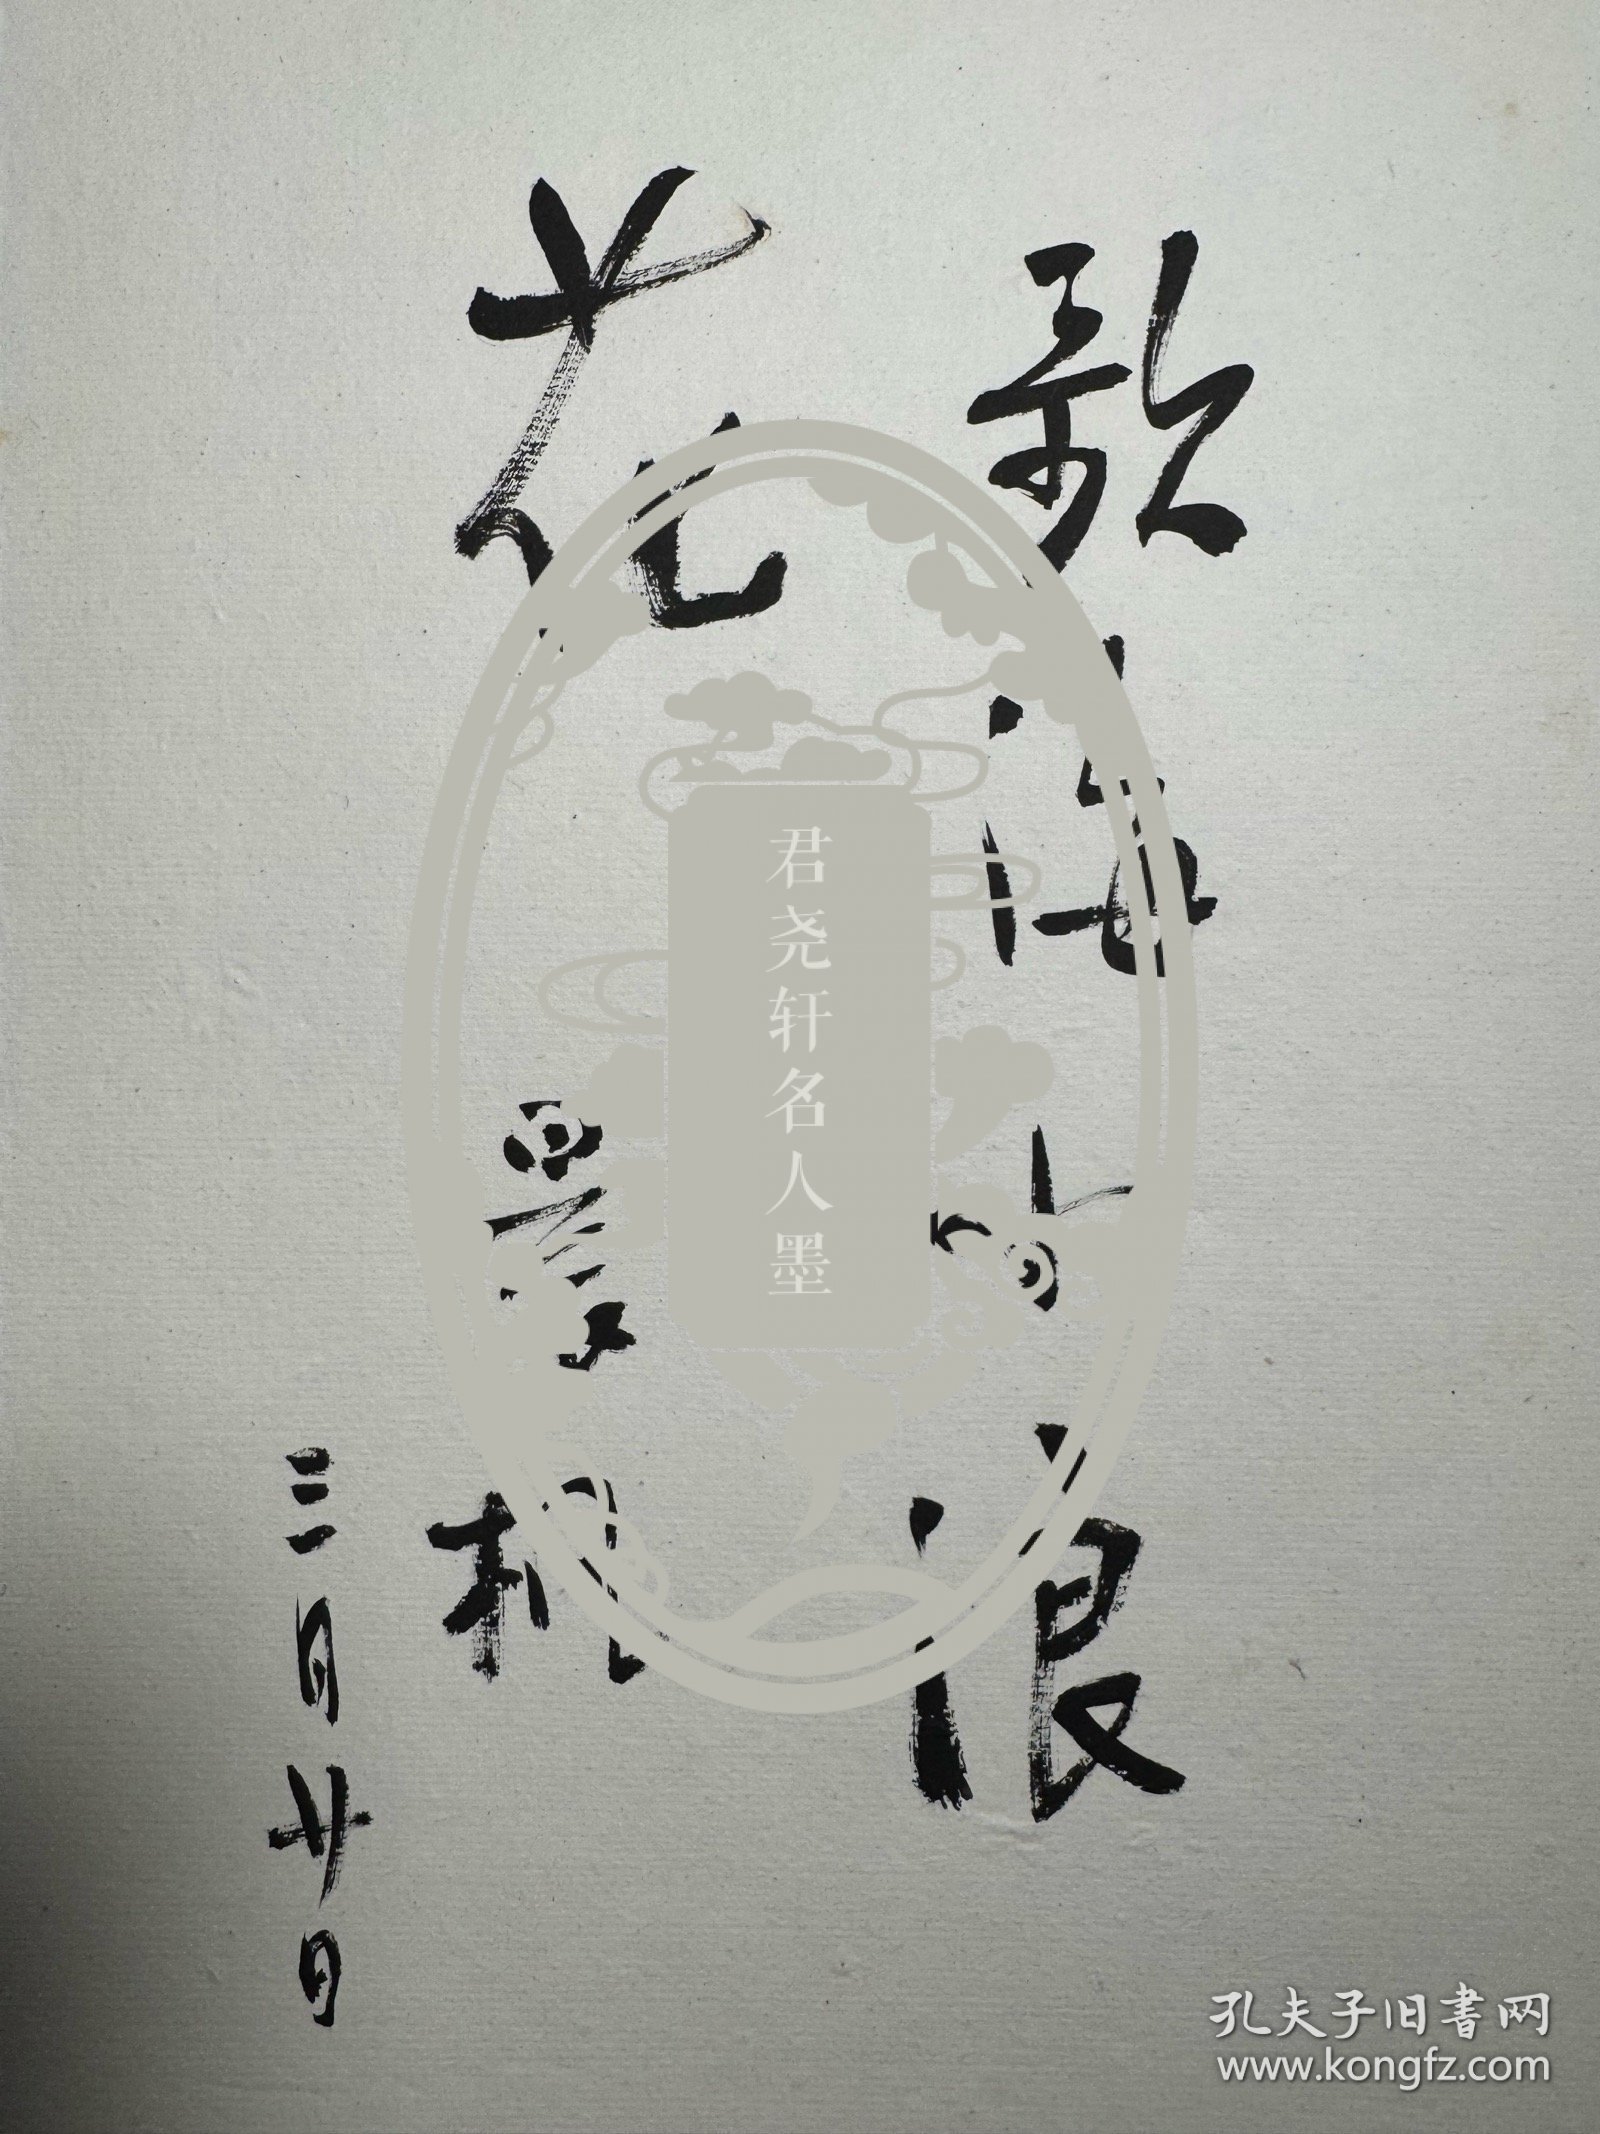 歌海尚浪
花
三月廿日
君尧轩名人墨
孔夫子旧书网
www.kongfz.com